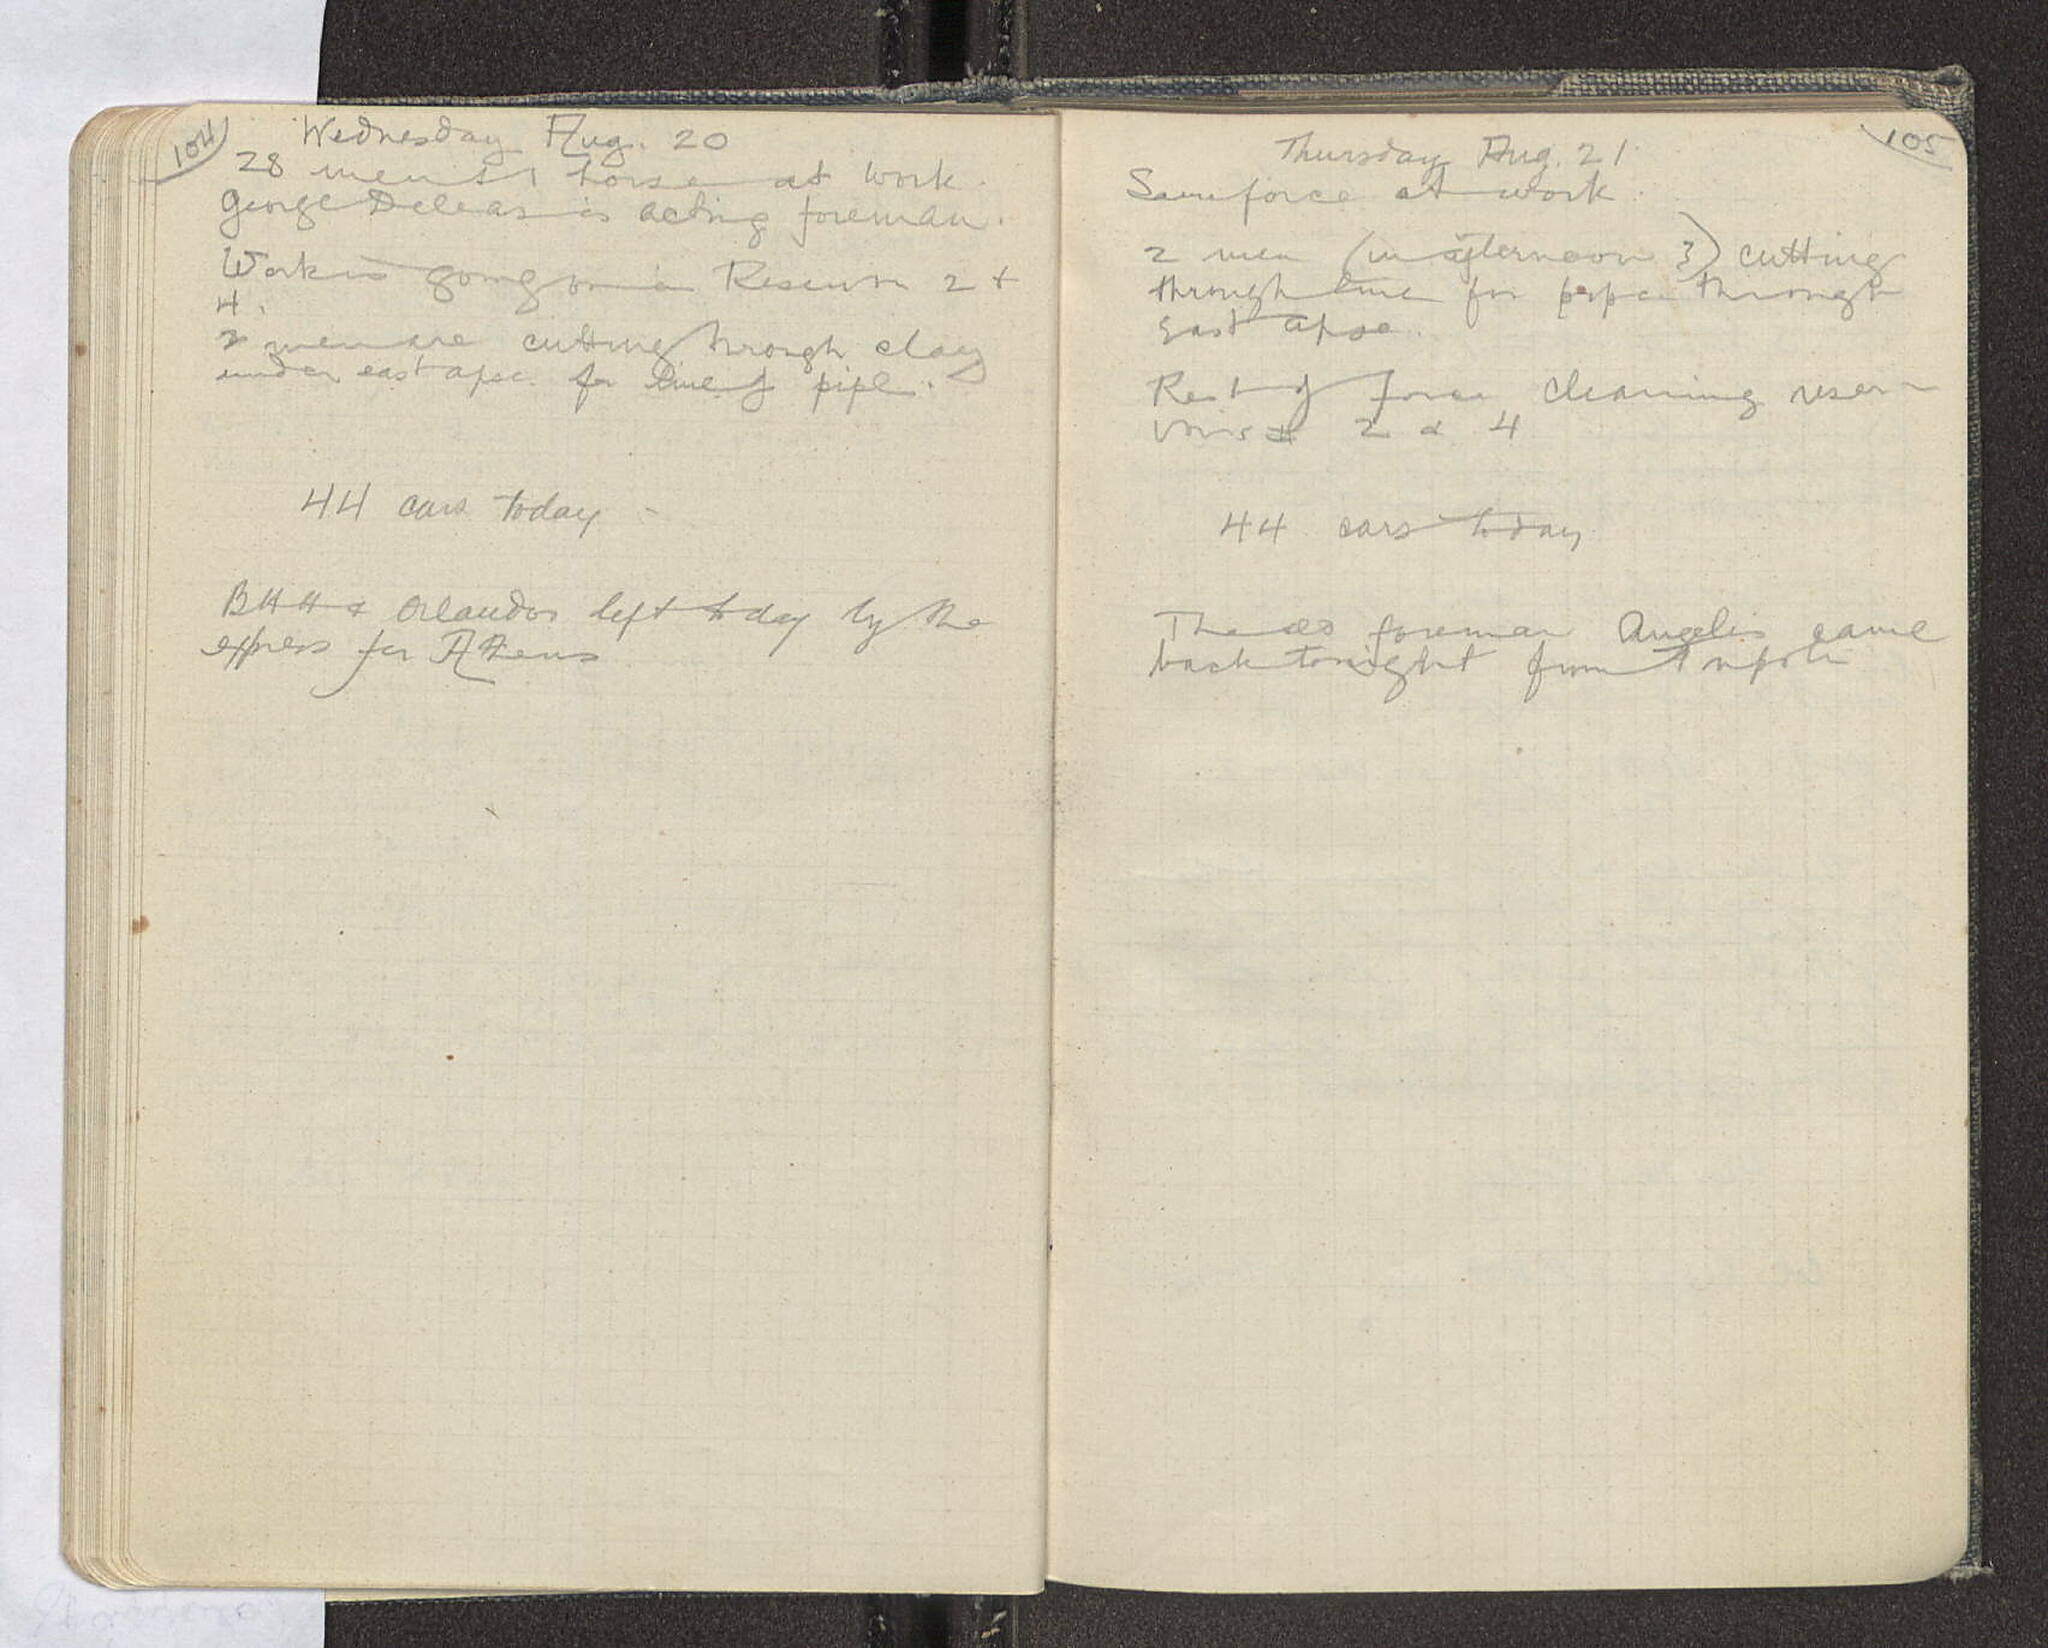 104
Wednesday Aug. 20
28 men & 1 horse at work.
George Deleas is acting foreman.
Work is going on in Reservoir 2 +
4.
2 men are cutting through clay
under east apse for line of pipe.
44 cars today -
BHH & Orlandos left today by the
express for Athens
105
Thursday Aug. 21
Same force at work.
2 men (in afternoon 3) cutting
through line for pipe through
East apse.
Rest of force cleaning reser-
voirs 2 & 4
44 cars today
The foreman Angelis came
back tonight from Tripoli